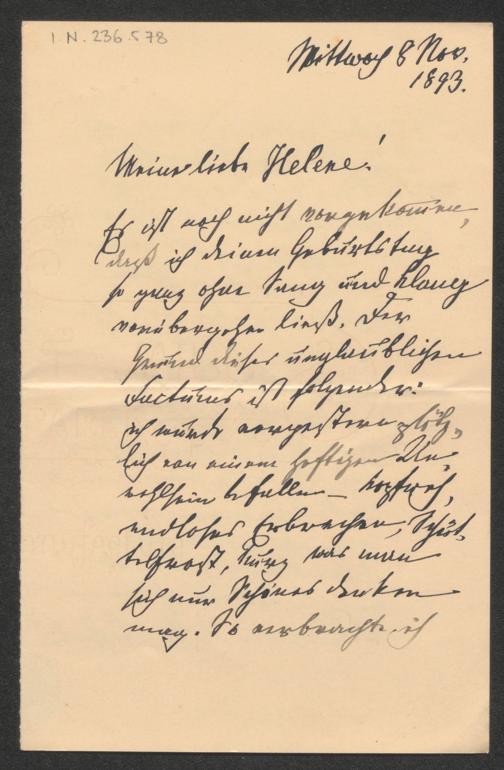 I.N. 236.578
Mittwoch 8 Nov.
1893.
Meine liebe Helene!
Es ist noch nicht vorgekommen,
daß ich deinen Geburtstag
so ganz ohne Sang und Klang
vorübergehen ließ. Der
Grund dieses unglaublichen
Factums ist folgender:
ich wurde vorgestern plötz-
lich von einem heftigen Un-
wohlsein befallen – Kopfweh,
endloses Erbrechen, Schüt-
telfrost, kurz was man
sich nur Schönes denken
mag. So verbrachte ich